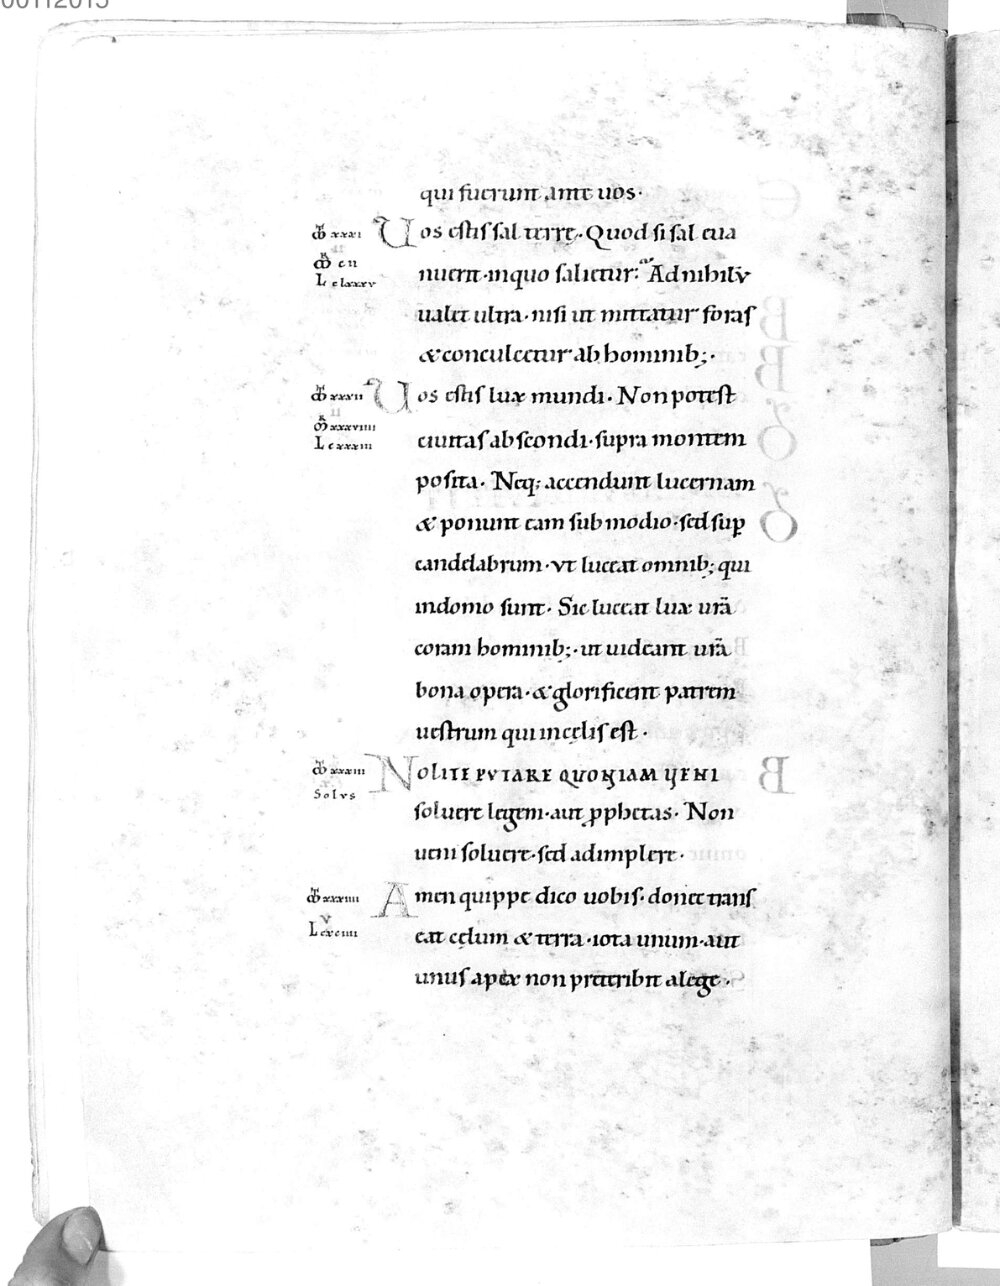 00112015
qui fuerunt ante uos·
Uos estis sal terrę· Quod si sal eua
nuerit· inquo salietur? Ad nihilũ
ualet ultra· nisi ut mittatur foras
& conculcetur ab hominib;·
Uos estis lux mundi· Non potest
ciuitas abscondi· supra montem
posita· Neq; accendunt lucernam
& ponunt eam sub modio· sed sup
candelabrum· vt luceat omnib; qui
indomo sunt· Sic luceat lux urã
coram hominib;· ut uideant urã
bona opera· & glorificent patrem
uestrum qui incęlis est·
NOLITE PUTARE QUONIAM UENI
soluere legem· aut pphetas· Non
ueni soluere· sed adimplere·
Amen quippe dico uobis· donec trans
eat cęlum & terra· iota unum· aut
unus apex non pręteribit alege·
xxxi
cii
L clxxxv
xxxii
xxxviiii
L cxxxiii
xxxiii
Solus
xxxiiii
v
L cxciiii